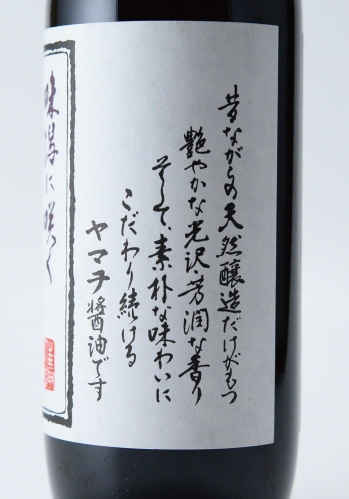 昔ながらの天然醸造だけがもつ
艶やかな光沢芳潤な香り
そして、素朴な味わいに
こだわり続ける
ヤマチ醤油です